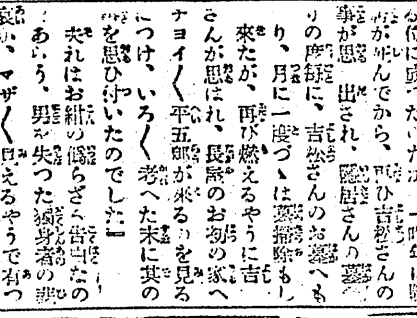 が死んでから、再び吉松さんの
事が思出され、隠居さんの墓
の度毎に、吉松さんのお墓へも
り、月に一度づゝは墓掃除もし
來たが、再び燃えるやうに吉
さんが思はれ、長屋のお初の家へ
チヨイ〳〵平五郎が來るのを見る
につけ、いろ〳〵考へた末に其の
を思ひ付いたのでした』
夫れはお紺の僞らざる告白なの
あらう、男を失つた獨身者の悲
マザ〳〵見えるやうで有つ